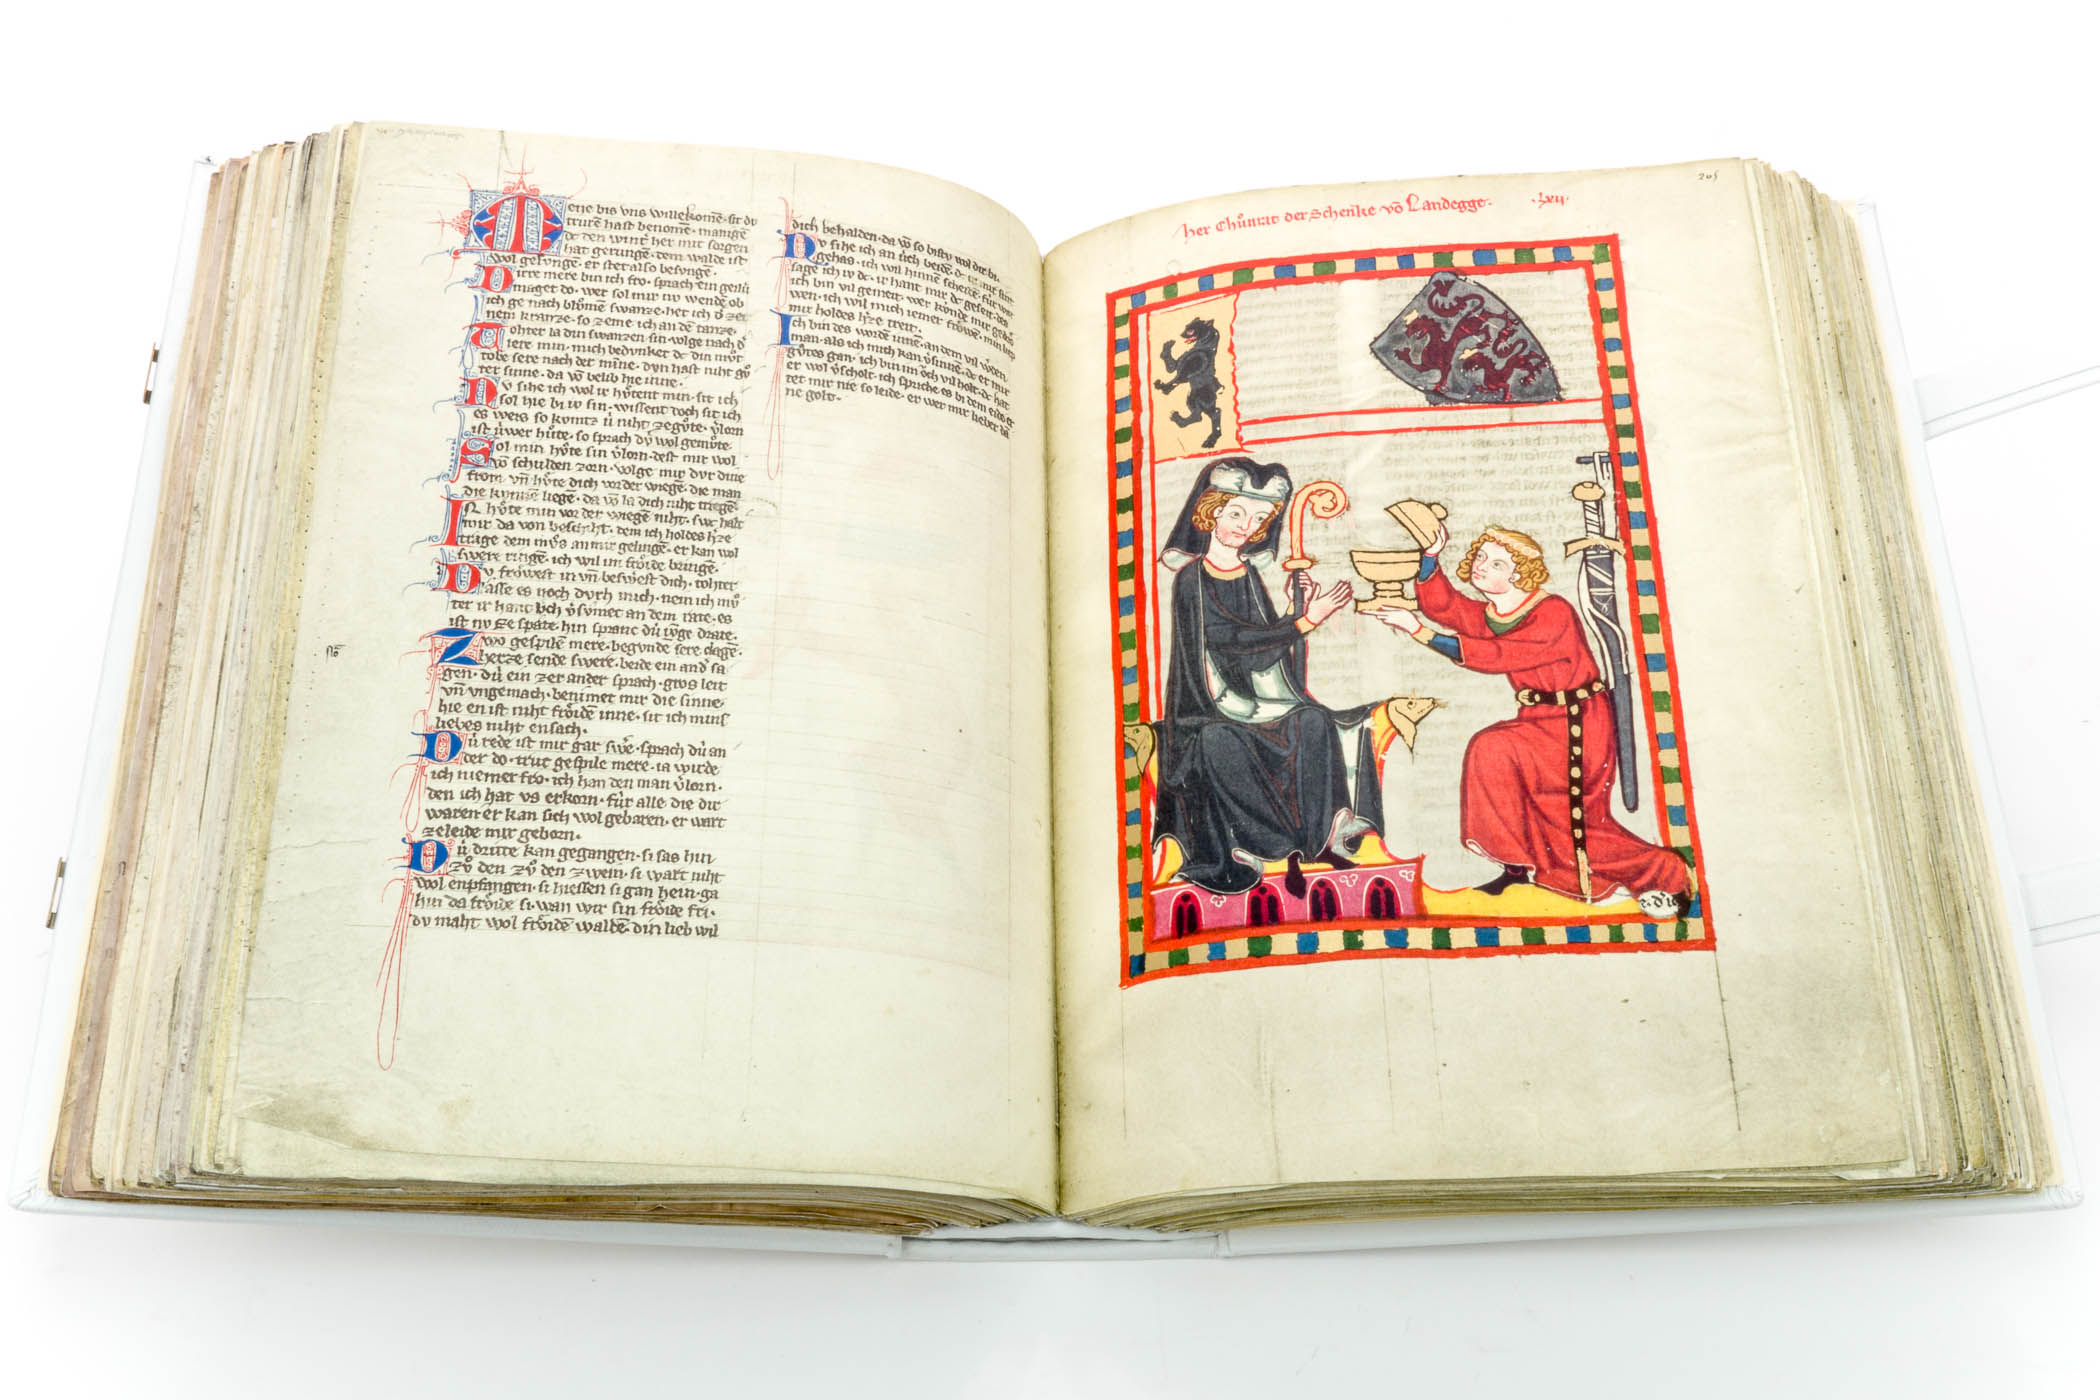 Meie bis vns willekomē· sit dv
trurē hast benomē· manigē
dc den wintˀ her mit sorgen
hat gerungē· dem walde ist
wol gelvngē· er stet also besvngē·
Dirre mere bin ich fro· sprach ein geilv̍
maget do· wer sol mir nv wendē ob
ich ge nach blv̊mē swanze· her ich
nem kranze· so zeme ich an dē tanze·
Tohter la din swanzen sin· volge nach dˀ
lere min· mich bedvnket dc din mv̊t
tobe sere nach der miñe· dvn hast niht gv̊
ter sinne· da vō belib hie inne·
Nv sihe ich wol ir hv̊tent min· sit ich
sol hie bi iv sin· wissent doch sit ich
es weis so kvmtz v̍ niht zegv̊te· v̍lorn
ist v̍wer hv̊te· so sprach dv̍ wol gemv̊te·
Sol min hv̊te sin v̍lorn· dest mir wol
vō schulden zorn· volge mir dvr dine
from· vn̄ hv̊te dich vor der wiegē· die man
die kvnnē liegē· da vō la dich niht triegē·
Ist hv̊te min vor der wiegē niht· swc halt
mir da von beschiht· dem ich holdes hˀze
trage dem mv̊s an mir gelingē· er kan wol
swere ringē· ich wil im frôide bringē·
Dv frôwest in vn̄ beswˀest dich· tohter
lasse es noch dvrh mich· nein ich mv̊
ter ir hant vch v̍svmet an dem rate· es
ist nv ze spate· hin spranc dv̍ ivnge drate·
Zwo gespilē mere· begvnde sere clagē·
herze sende swere· beide ein andˀ sa
gen· dv̍ ein zer ander sprach· gros leit
vn̄ vngemach· benimet mir die sinne·
hie en ist niht frôidē inne· sit ich mins
liebes niht ensach·
Dv̍ rede ist mir gar swˀe· sprach dv̍ an
der do· trut gespile mere· ia wirde
ich niemer fro· ich han den man v̍lorn·
den ich hat vs erkorn· fv̍r alle die dir
waren er kan sich wol gebaren· er wart
zeleide mir geborn·
Dv̍ dritte kan gegangen· si sas hin
zv̊ den zv̊ den zwein· si wart niht
wol enpfangen· si hiessen si gan hein· ga
hin da frôide si· wan wir sin frôide fri·
dv maht wol frôidē waldē· din lieb wil
dich behaldē· da vō so bistv wol dir bi·
Nv sihe ich an v̍ch beidē· dc ir mir sint
gehas· ich wil hinnē scheidē· fv̍r war
sage ich iv dc· ir hant mir dc geseit· des
ich bin vil gemeit· wer kônde mir gedrōn
wen· ich wil mich iemer frôwē· min liep
mir holdes hˀze treit·
Ich bin des wordē inne· an dem vil
man· als ich mich kan v̍sinnē· dc er mir
gv̊tes gan· ich bin im ôch vil holt· dc hat
er wol v̍scholt· ich spriche es bi dem eide er
tet mir nie so leide· er wer mir lieber dā
ne golt·
her Chv̊nrat der Schenke vō Landegge· ·lxii·
205